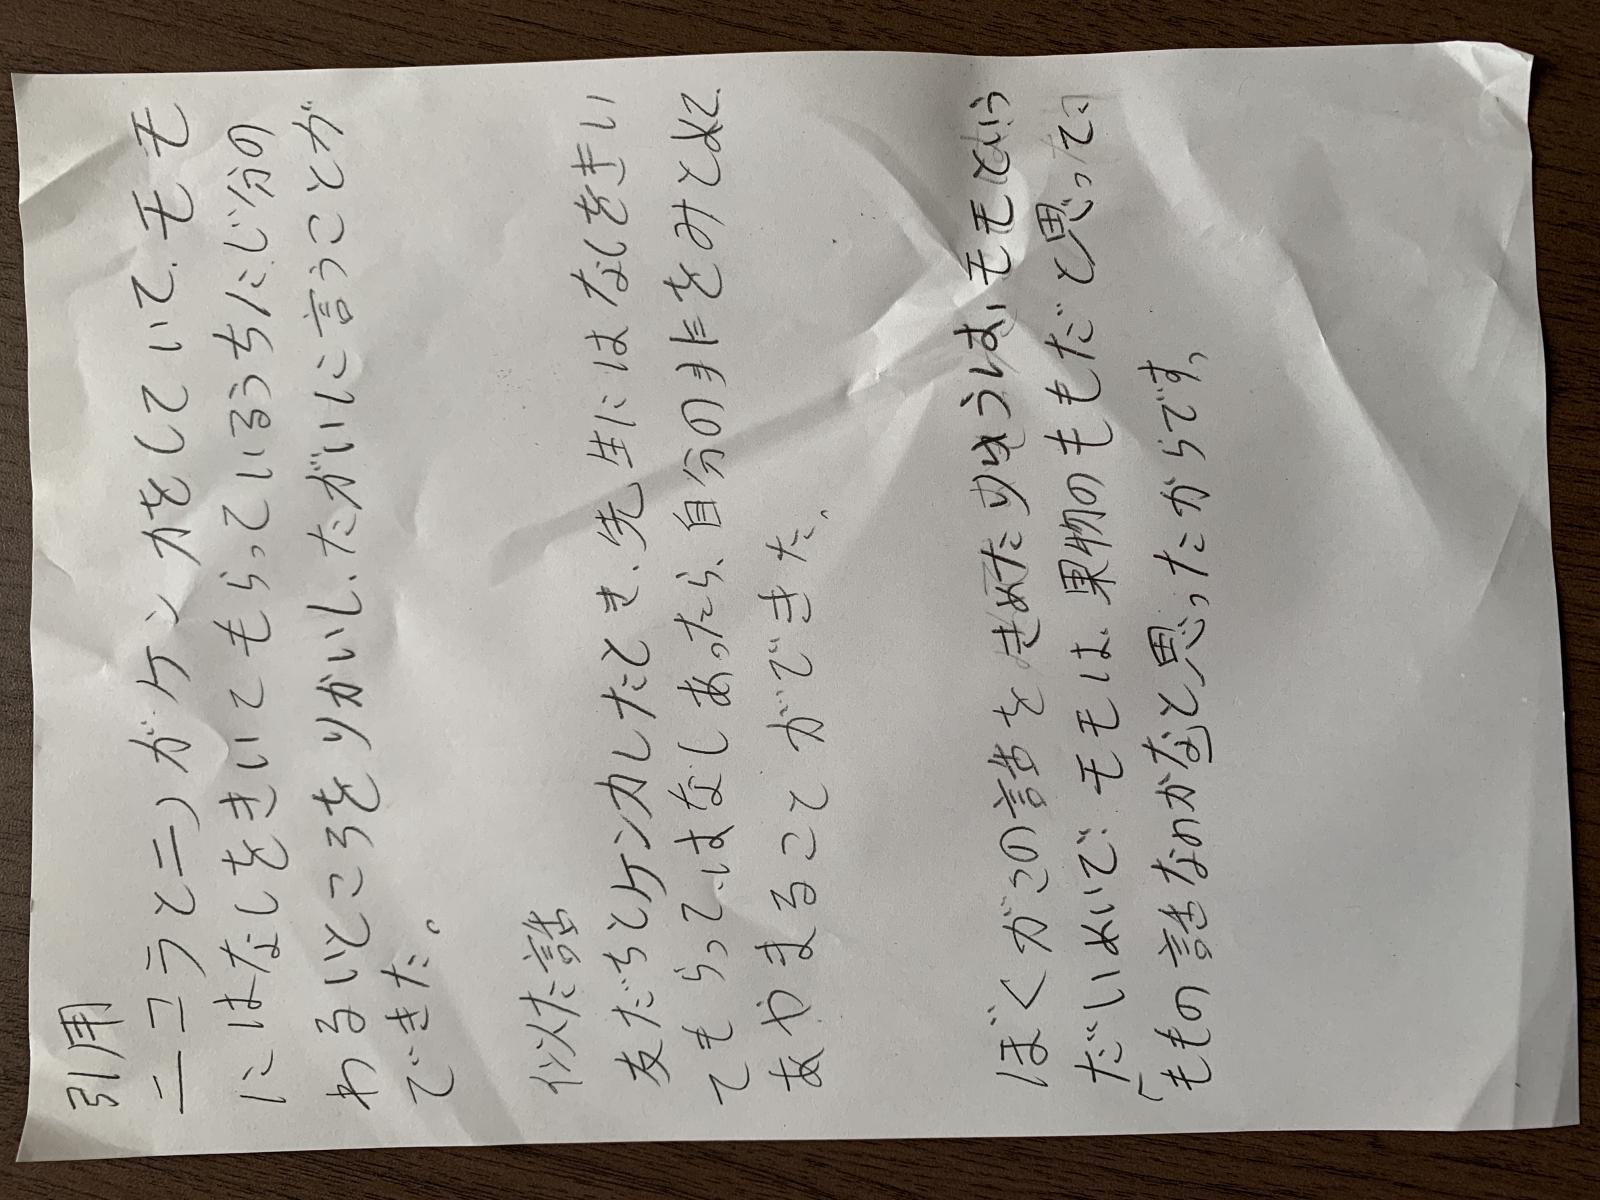 引用
ニコラとニノがケンカをしていて、モモ
にはなしをきいてもらっているうちにじ分の
わるいところをりかいし、たがいに言うことが
できた。
似た話
友だちとケンカしたとき、先生にはなしをきい
てもらって、はなしあったら、自分のまちをみとめて、
あやまることができた。
ぼくがこの話をきめたりゆうは、モモという
だいめいで、モモは、果物のももだと思って、
「ももの話なのかな」と思ったからです。